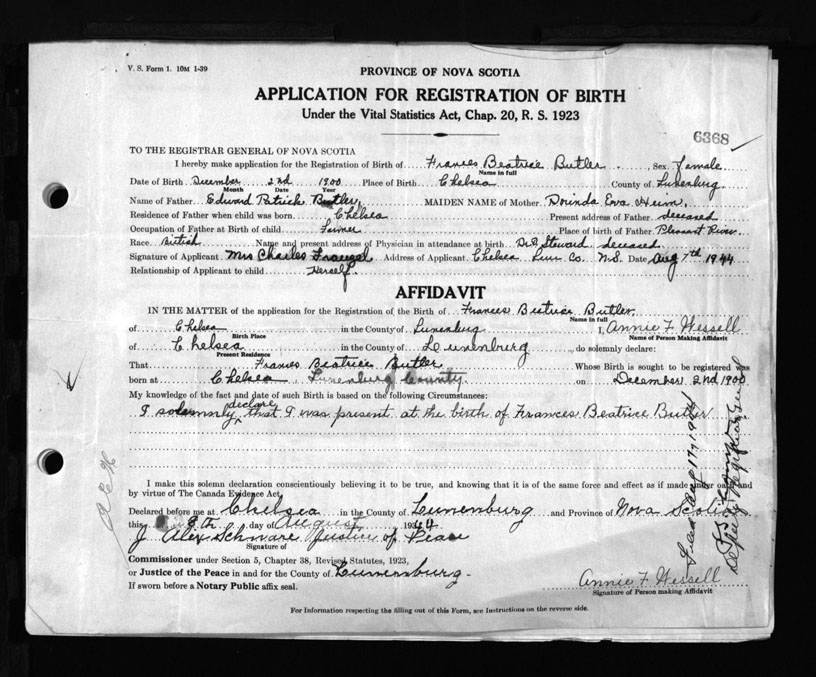 V. S. Form 1. 10M 1-39
PROVINCE OF NOVA SCOTIA
APPLICATION FOR REGISTRATION OF BIRTH
Under the Vital Statistics Act, Chap. 20, R. S. 1923
6368
TO THE REGISTRAR GENERAL OF NOVA SCOTIA
I hereby make application for the Registration of Birth of Frances Beatrice Butler, Sex female
Name in full
Date of Birth December 2nd 1900 Place of Birth Chelsea County of Lunenburg
Month Date Year
Name of Father Edward Patrick Butler, MAIDEN NAME of Mother Dorinda Eva
Residence of Father when child was born Chelsea Present address of Father deceased
Occupation of Father at Birth of child Farmer Place of birth of Father Pleasant River
Race British Name and present address of Physician in attendance at birth Dr. Steward deceased
Signature of Applicant Mrs Charles Address of Applicant Chelsea Lun Co. N.S. Date Aug 7th 1944
Relationship of Applicant to child Herself
AFFIDAVIT
IN THE MATTER of the application for the Registration of the Birth of Frances Beatrice Butler
Name in full
of Chelsea in the County of Lunenburg I, Annie F Wessell
Birth Place Name of Person Making Affidavit
of Chelsea in the County of Lunenburg do solemnly declare:
Present Residence
That Frances Beatrice Butler Whose Birth is sought to be registered was
born at Chelsea, Lunenburg County on December 2nd 1900
My knowledge of the fact and date of such Birth is based on the following Circumstances:
I solemnly declare that I was present at the birth of Frances Beatrice Butler
I make this solemn declaration conscientiously believing it to be true, and knowing that it is of the same force and effect as if made under oath and
by virtue of The Canada Evidence Act.
Declared before me at Chelsea in the County of Lunenburg and Province of Nova Scotia
this 8th day of August 1944
J Alex Schnare Justice of Peace
Signature of
Commissioner under Section 5, Chapter 38, Revised Statutes, 1923,
or Justice of the Peace in and for the County of Lunenburg
If sworn before a Notary Public affix seal.
Annie F Wessell
Signature of Person making Affidavit
For Information respecting the filling out of this Form, see Instructions on the reverse side.
Aug 17 1944
Deputy Registrar General